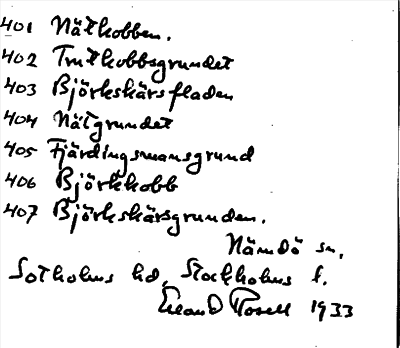 401 Nätkobben.
402 Trutkobbsgrundet
403 Björkskärsfladen
404 Nätgrundet
405 Fjärdingsmansgrund
406 Björkkobb
407 Björkskärsgrunden.
Nämdö sn,
Sotholms hd, Stockholms l.
Erland Rosell 1933